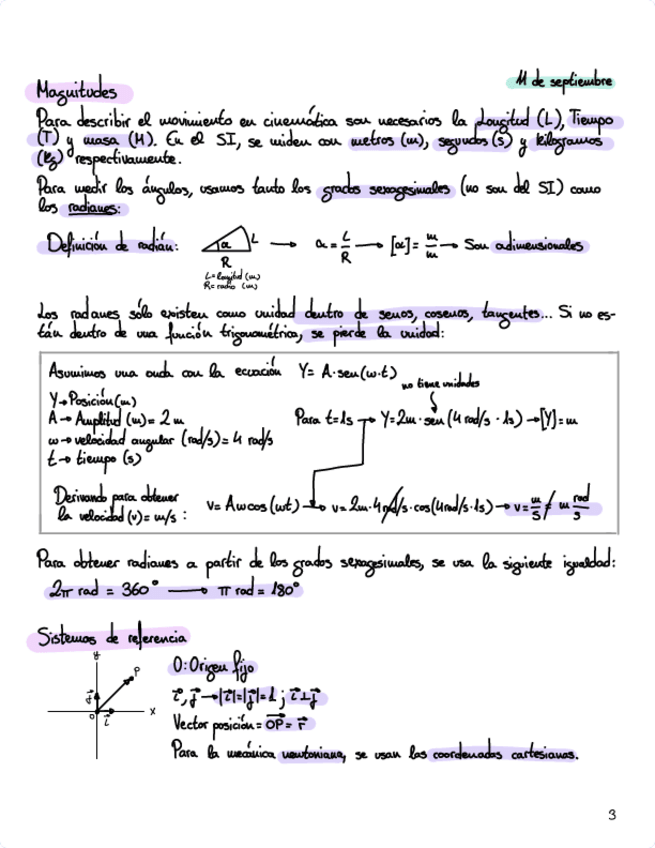 11 de septiembre
Magnitudes
Para describir el movimiento en cinemática son necesarios la Longitud (L), Tiempo
(T) y masa (M). En el SI, se miden con metros (m), segundos (s) y kilogramos
(kg) respectivamente.
Para medir los ángulos, usamos tanto los grados sexagesimales (no son del SI) como
los radianes:
Definición de radián: α L R → α = L/R → [α] = m/m → Son adimensionales
L = longitud (m)
R = radio (m)
Los radianes sólo existen como unidad dentro de senos, cosenos, tangentes... Si no es-
tán dentro de una función trigonométrica, se pierde la unidad:
Asumimos una onda con la ecuación Y = A·sen(ω·t)
no tiene unidades
Y → Posición (m)
A → Amplitud (m) = 2 m Para t=1s → Y = 2m·sen(4 rad/s · 1s) → [Y] = m
ω → velocidad angular (rad/s) = 4 rad/s
t → tiempo (s)
Derivando para obtener
la velocidad (v) = m/s : v = Aωcos(ωt) → v = 2m·4 rad/s·cos(4rad/s·1s) → v = m/s ≠ m rad/s
Para obtener radianes a partir de los grados sexagesimales, se usa la siguiente igualdad:
2π rad = 360° → π rad = 180°
Sistemas de referencia
y P j i O x
O: Origen fijo
i⃗, j⃗ → |i⃗| = |j⃗| = 1 ; i⃗ ⊥ j⃗
Vector posición = OP⃗ = r⃗
Para la mecánica newtoniana, se usan las coordenadas cartesianas.
3